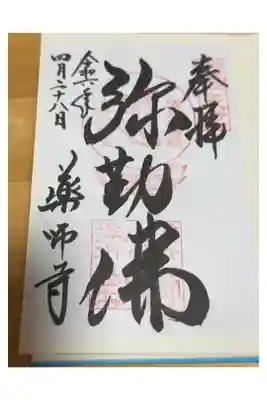 奉拝
弥勒佛
令和六年
四月二十八日
薬師寺